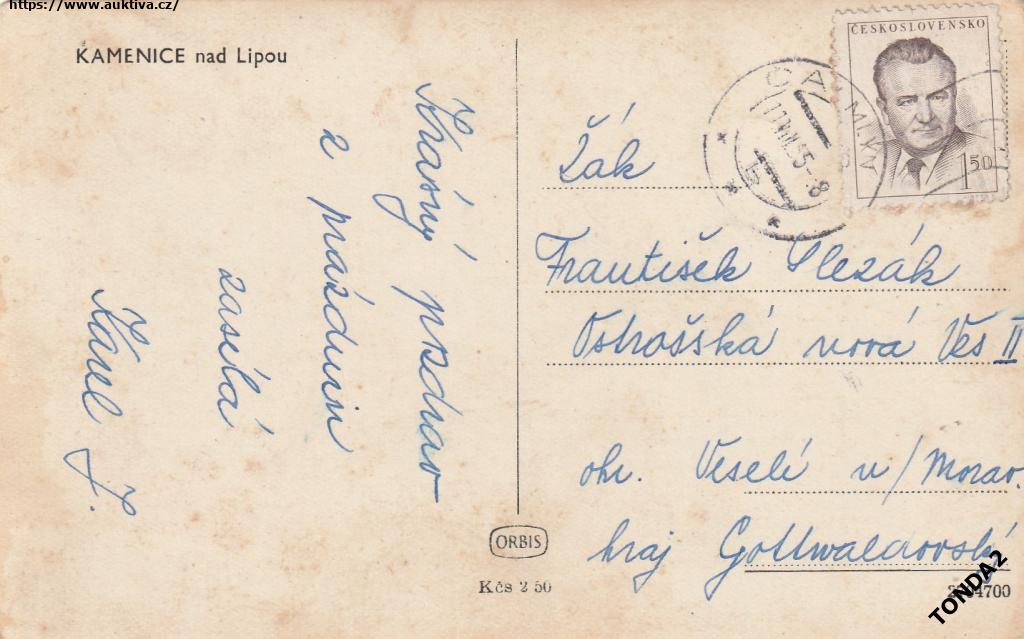 https://www.auktiva.cz/
KAMENICE nad Lipou
Krásný pozdrav
z prázdnin
zasélá
Karel J.
ČESKOSLOVENSKO
1 50
Žák
František Slezák
Ostrožská nová Ves II
okr. Veselí n/Morav.
kraj Gottwaldovský
ORBIS
Kčs 2 50
TONDA2